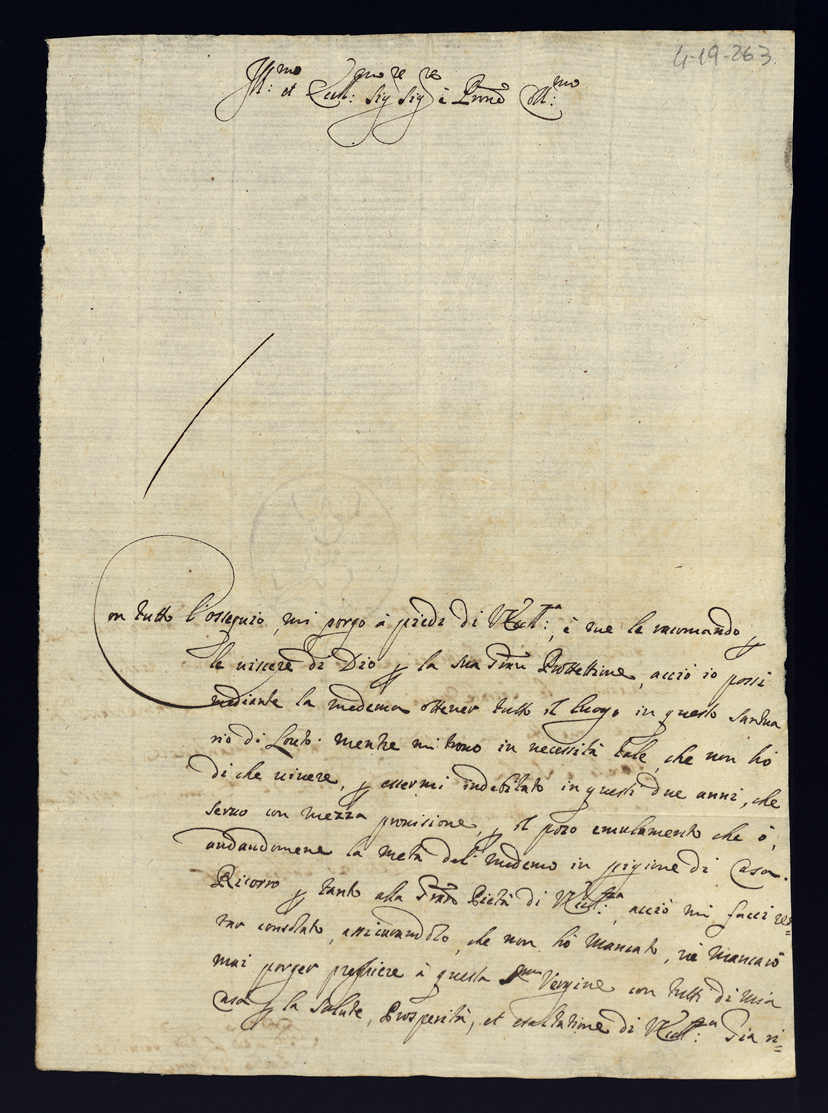 4-19-263.
Ill:mo et Ecc:mo Sig:re Sig:re è Prone Coll:mo
Con tutto l'ossequio, mi porgo à piedi di V Ecc:a, è me le racomando p
le viscere di Dio p la sua Gran Prottettione, acciò io possi
mediante la medema ottener tutto il luogo in questo Santua
rio di Loreto mentre mi trovo in necessità tale, che non hò
di che vivere, p essermi indebitato in questi due anni, che
servo con mezza provisione, p il poco emulamento che ò,
andandomene la metà del medemo in pigione di Casa.
Ricorro p tanto alla Gran Pietà di V Ecc:za, acciò mi facci re=
star consolato, assicurandolo, che non hò mancato, nè mancarò
mai porger preghiere à questa S:ma Vergine con tutti di mia
Casa p la Salute, Prosperità, et esaltatione di V Ecc:za Già ri=